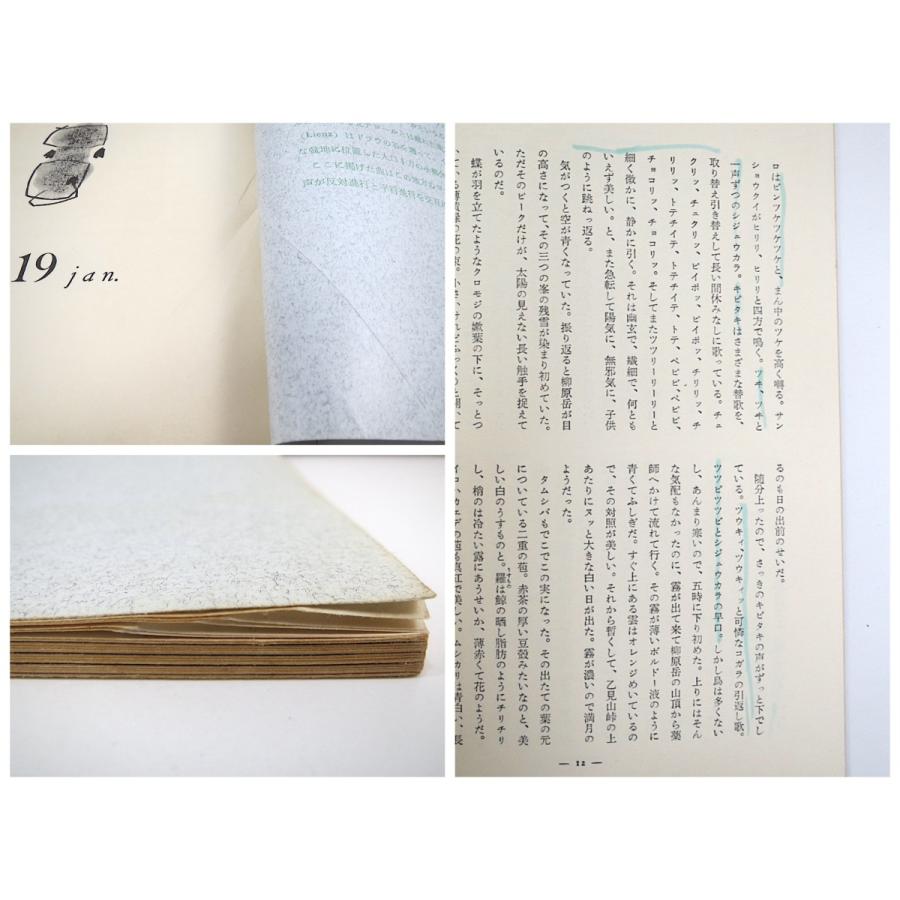 19 jan.
(Lienz) はドラウの
な盆地に位置した人口1万の
ここに掲げた
声が反対進行と平行進行を交互に
ロはピンツケケツケと、まん中のツケを高く囀る。サン
ショウクイがヒリリ、ヒリリと四方で鳴く。ツキ、ツキと
一声ずつのシジュウカラ。キビタキはさまざまな替歌を、
取り替え引き替えして長い間休みなしに歌っている。チュ
クリッ、チュクリッ、ピイポッ、ピイポッ、チリリッ、チ
リリッ、トテチイテ、トテチイテ、トテ、ペピピ、ペピピ、
チョコリッ、チョコリッ。そしてまたツツリーリーリーと
細く微かに、静かに引く。それは幽玄で、繊細で、何とも
いえず美しい。と、また急転して陽気に、無邪気に、子供
のように跳ねっ返る。
気がつくと空が青くなっていた。振り返ると柳原岳が目
の高さになって、その三つの峯の残雪が染まり初めていた。
ただそのピークだけが、太陽の見えない長い触手を捉えて
いるのだ。
蝶が羽を立てたようなクロモジの嫩葉の下に、そっとつ
るのも日の出前のせいだ。
随分上ったので、さっきのキビタキの声がずっと下でし
ている。ツウキィ、ツウキィッと可憐なコガラの引返し歌。
ツツピツツピとシジュウカラの早口。しかし鳥は多くない
し、あんまり寒いので、五時に下り初めた。上りにはそん
な気配もなかったのに、霧が出て来て柳原岳の山頂から薬
師へかけて流れて行く。その霧が薄いボルドー液のように
青くてふしぎだ。すぐ上にある雲はオレンジめいているの
で、その対照が美しい。それから暫くして、乙見山峠の上
あたりにヌッと大きな白い日が出た。霧が濃いので満月の
ようだった。
タムシバもでこでこの実になった。その出たての葉の元
についている二重の苞。赤茶の厚い豆殻みたいなのと、美
しい白のうすものと。羅は鯨の晒し脂肪のようにチリチリ
うすもの
し、梢のは冷たい露にあうせいか、薄赤くて花のようだ。
イロハカエデの苞も真紅で美しい。ムシカリは青白い、長
— 12 —